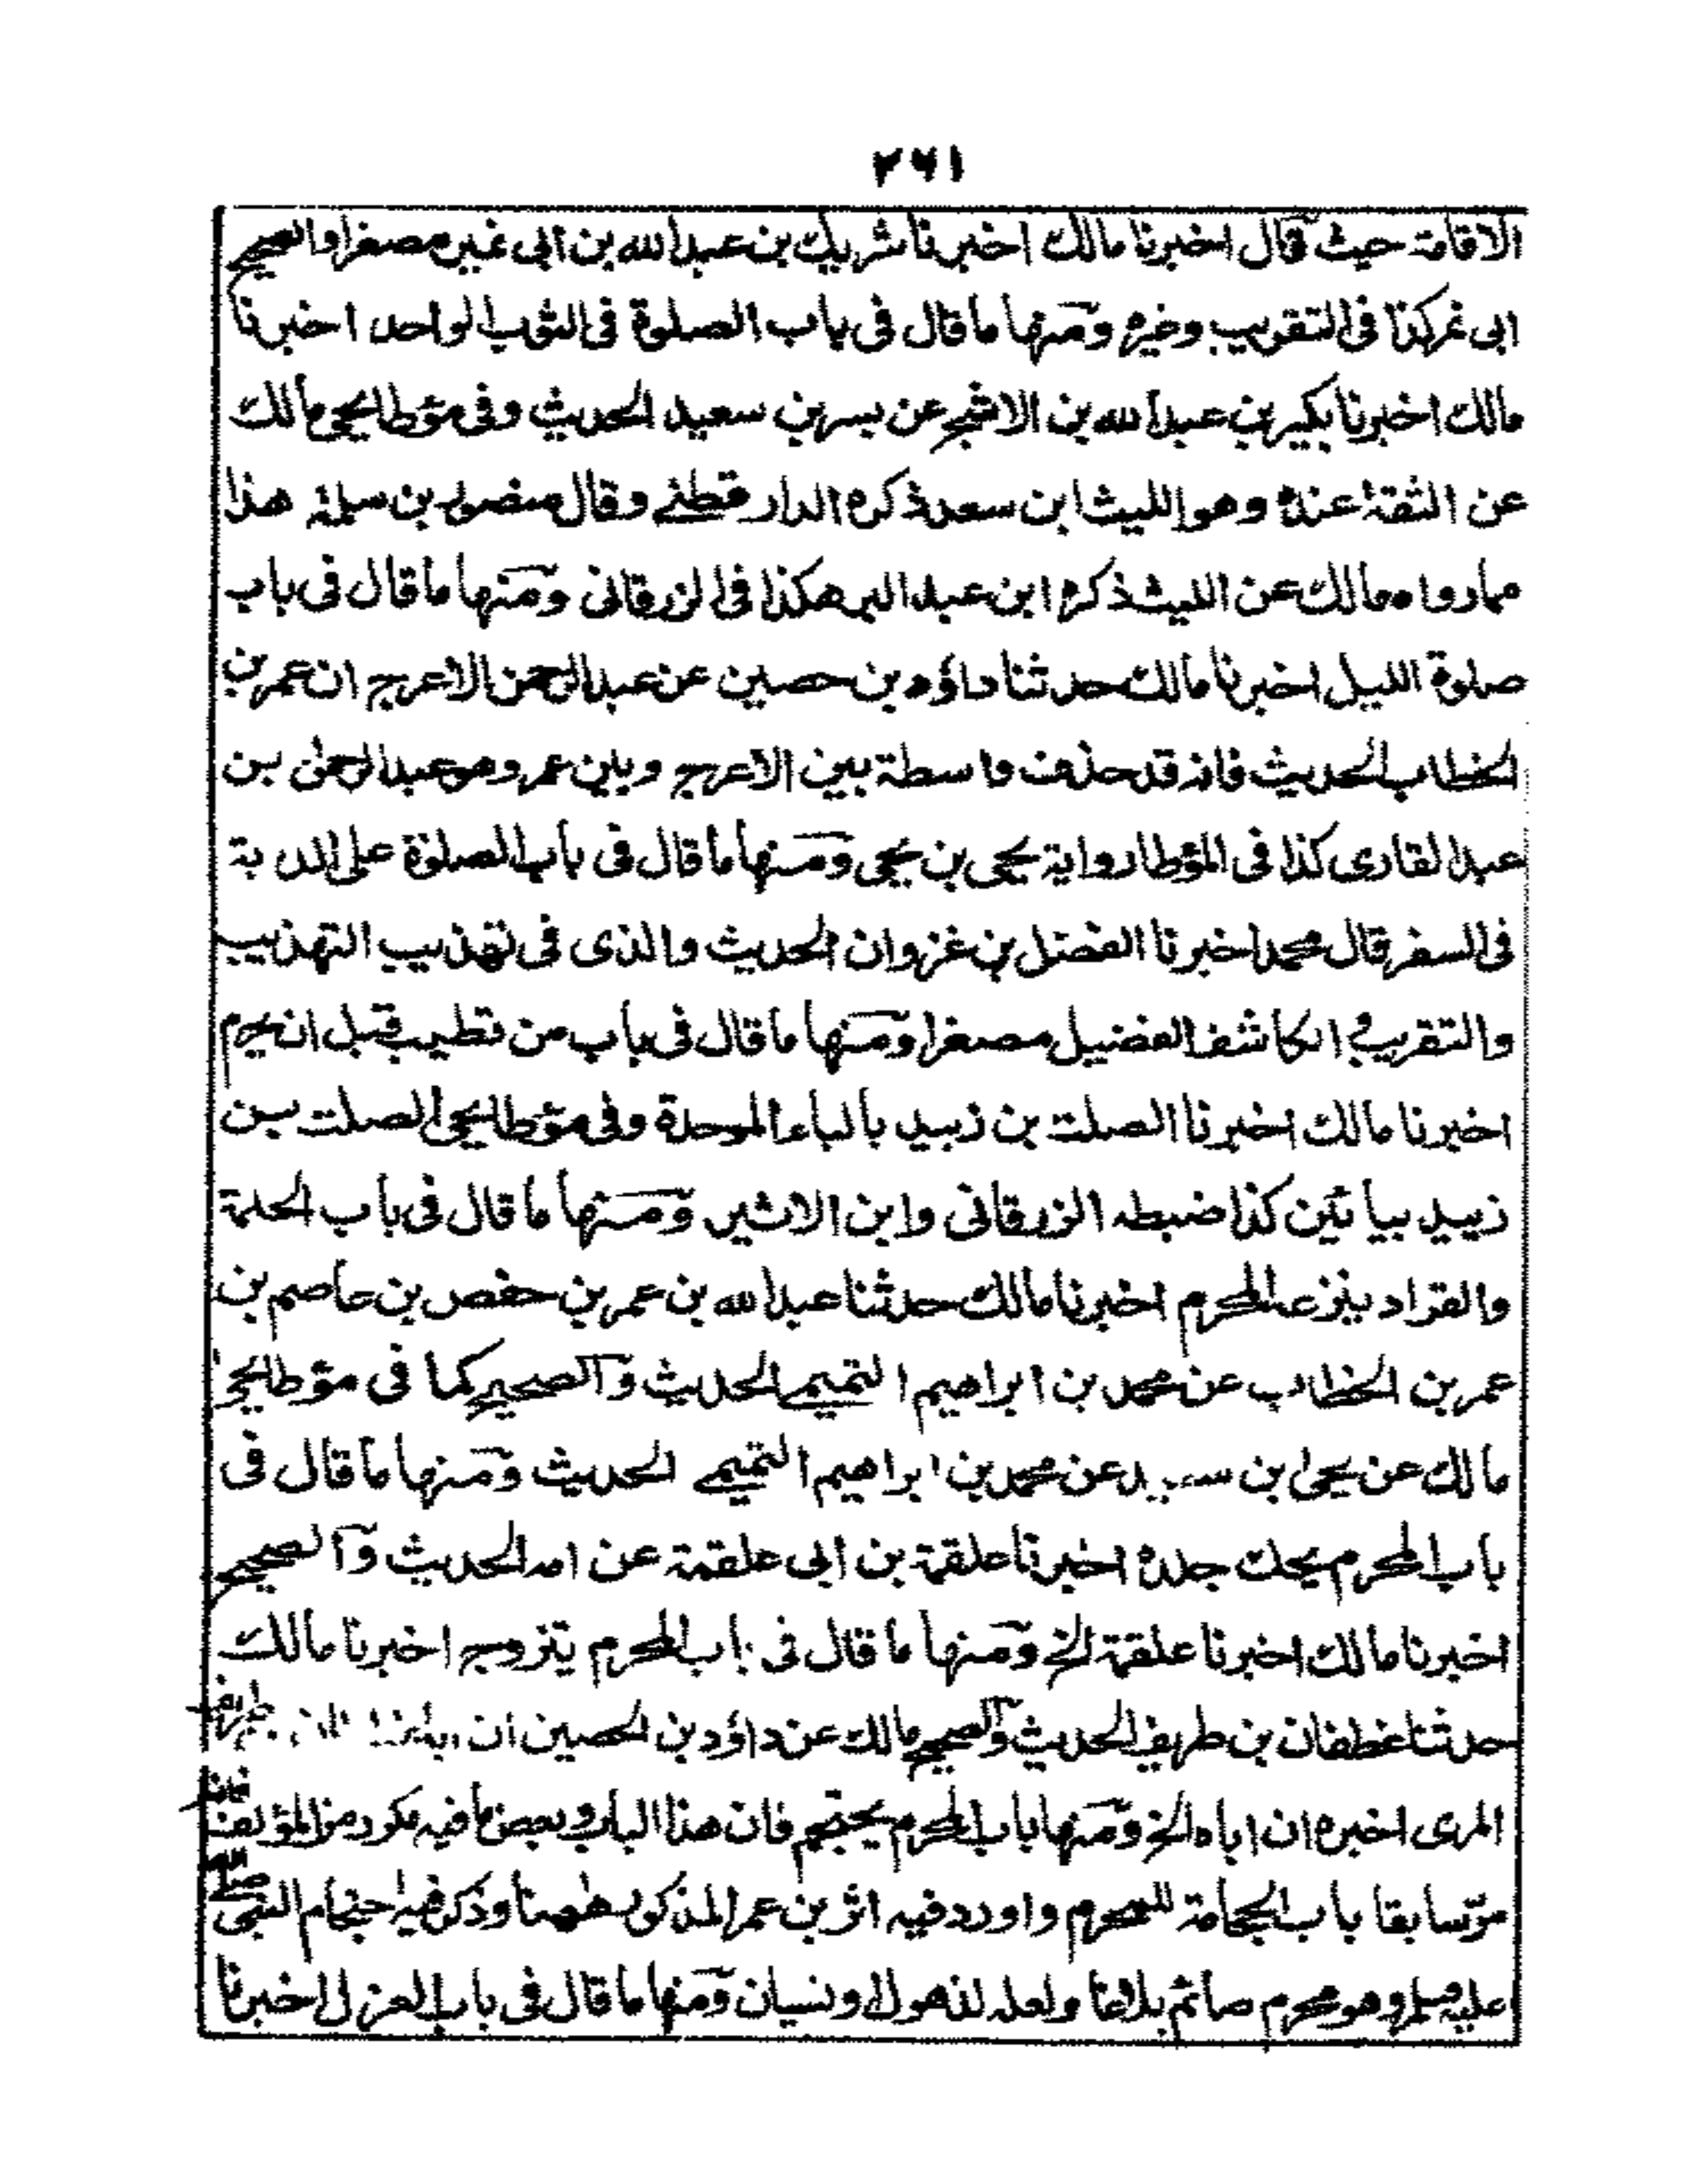 ٢٦١
الاقامة حيث قال اخبرنا مالك اخبرنا شريك بن عبدالله بن ابى نمير مصغرا والصحيح
ابى نمر كذا فى التقريب وغيره ومنها ما قال فى باب الصلوة فى الثوب الواحد اخبرنا
مالك اخبرنا بكير بن عبدالله بن الاشج عن بسر بن سعيد الحديث وفى مؤطا يحيى مالك
عن الثقة عنده وهو الليث ابن سعد ذكره الدار قطنى وقال منصور بن سلمة هذا
مما رواه مالك عن الليث ذكره ابن عبد البر هكذا فى الزرقانى ومنها ما قال فى باب
صلوة الليل اخبرنا مالك حدثنا داؤد بن حصين عن عبدالرحمن الاعرج ان عمر بن
الخطاب الحديث فانه قد حذف واسطة بين الاعرج وبين عمر وهو عبدالرحمن بن
عبد القارى كذا فى المؤطا رواية يحيى بن يحيى ومنها ما قال فى باب الصلوة على الدابة
فى السفر قال محمد اخبرنا الفضل بن غزوان الحديث والذى فى تهذيب التهذيب
والتقريب والكاشف الفضيل مصغرا ومنها ما قال فى باب من تطيب قبل ان يحرم
اخبرنا مالك اخبرنا الصلت بن زبيد بالباء الموحدة وفى مؤطا يحيى الصلت بن
زييد بيائين كذا ضبطه الزرقانى وابن الاثير ومنها ما قال فى باب الحلمة
والقراد ينزعه المحرم اخبرنا مالك حدثنا عبدالله بن عمر بن حفص بن عاصم بن
عمر بن الخطاب عن محمد بن ابراهيم التميمى الحديث والصحيح كما فى مؤطا يحيى
مالك عن يحيى بن سعيد عن محمد بن ابراهيم التميمى الحديث ومنها ما قال فى
باب المحرم يحك جلده اخبرنا علقمة بن ابى علقمة عن امه الحديث والصحيح
اخبرنا مالك اخبرنا علقمة الخ ومنها ما قال فى باب المحرم يتزوج اخبرنا مالك
حدثنا غطفان بن طريف الحديث والصحيح مالك عن داؤد بن الحصين ان ابا غطفان بن طريف
المرى اخبره ان اباه الخ ومنها باب المحرم يحتجم فان هذا الباب وبعض ما فيه مكرر من المؤلف فانه
مر سابقا باب الحجامة للمحرم واورد فيه اثر بن عمر المذكور ههنا وذكر فيه احتجام النبى صلى الله
عليه وسلم وهو محرم صائم بلاغا ولعله لذهول ونسيان ومنها ما قال فى باب العزل اخبرنا